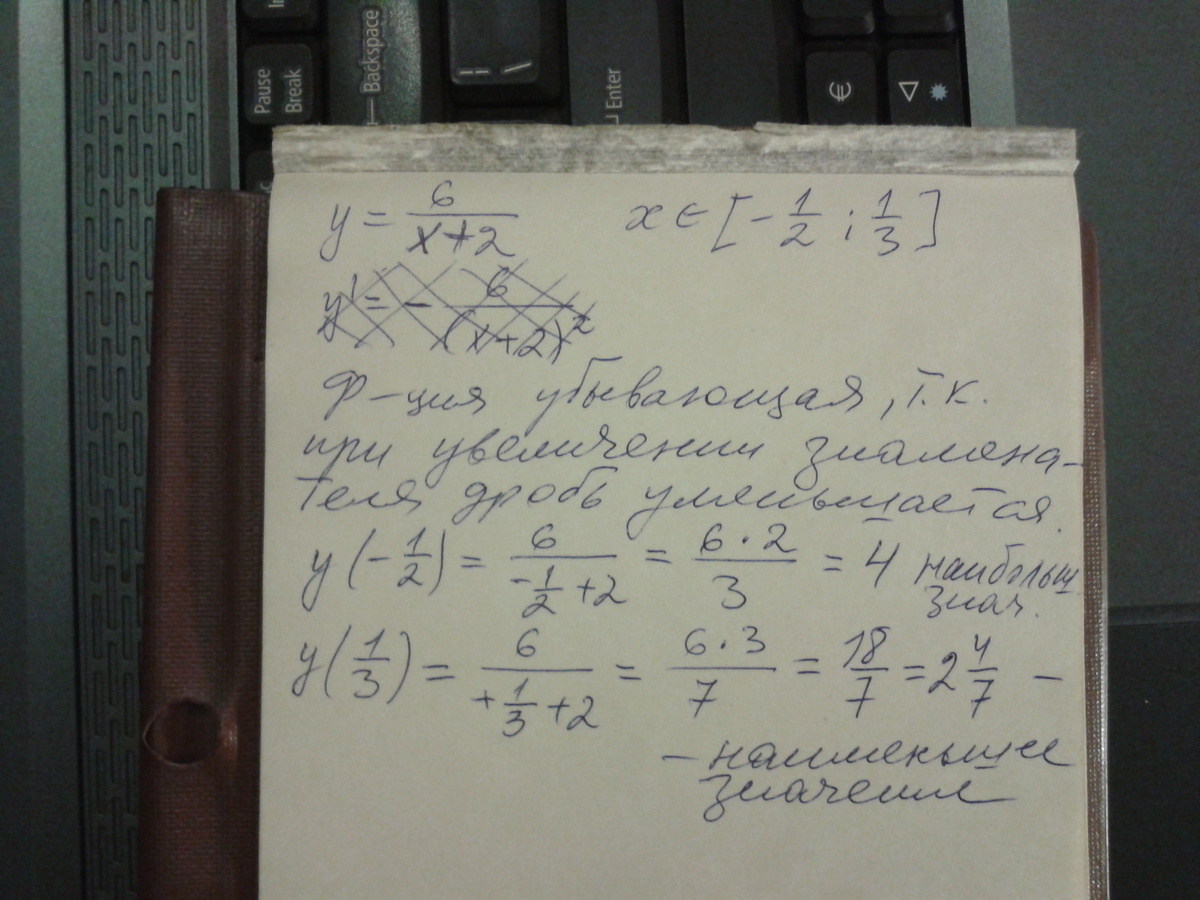 In
Pause
Break
Backspace
Enter
€
y = 6/(x+2)   x ∈ [-1/2 ; 1/3]
y' = - 6/(x+2)²
Ф-ция убывающая, т.к.
при увеличении знамена-
теля дробь уменьшается.
y(-1/2) = 6/(-1/2 +2) = 6·2/3 = 4 наибольш.
знач.
y(1/3) = 6/(+1/3 +2) = 6·3/7 = 18/7 = 2 4/7 –
– наименьшее
значение